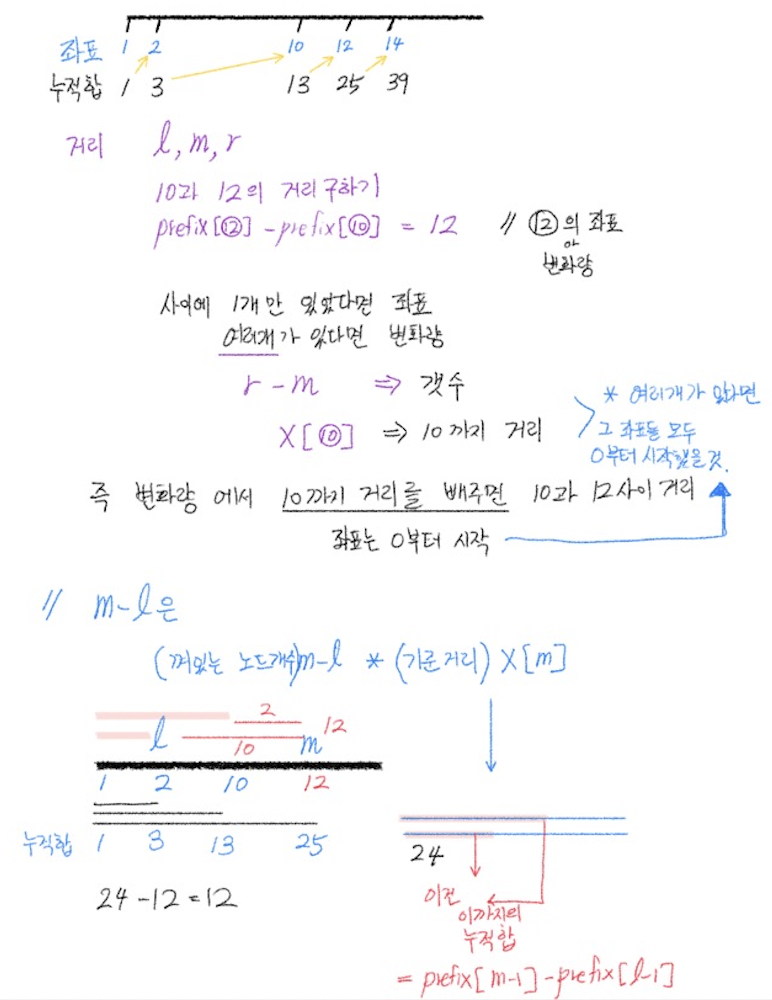 좌표 1 2 10 12 14
누적합 1 3 13 25 39
거리 l, m, r
10과 12의 거리구하기
prefix[⑫] - prefix[⑩] = 12 // ⑫의 좌표
or
변화량
사이에 1개만 있었다면 좌표
여러개가 있다면 변화량
r - m ⇒ 갯수
X[⑩] ⇒ 10까지 거리
* 여러개가 있다면
그 좌표들 모두
0부터 시작했을것.
즉 변화량 에서 10까지 거리를 빼주면 10과 12사이 거리
좌표는 0부터 시작
// m-l은
(껴있는 노드개수)m-l * (기준거리) X[m]
2
l 10 m 12
1 2 10 12
누적합 1 3 13 25
24 - 12 = 12
24
이전
이까지의
누적합
= prefix[m-1] - prefix[l-1]